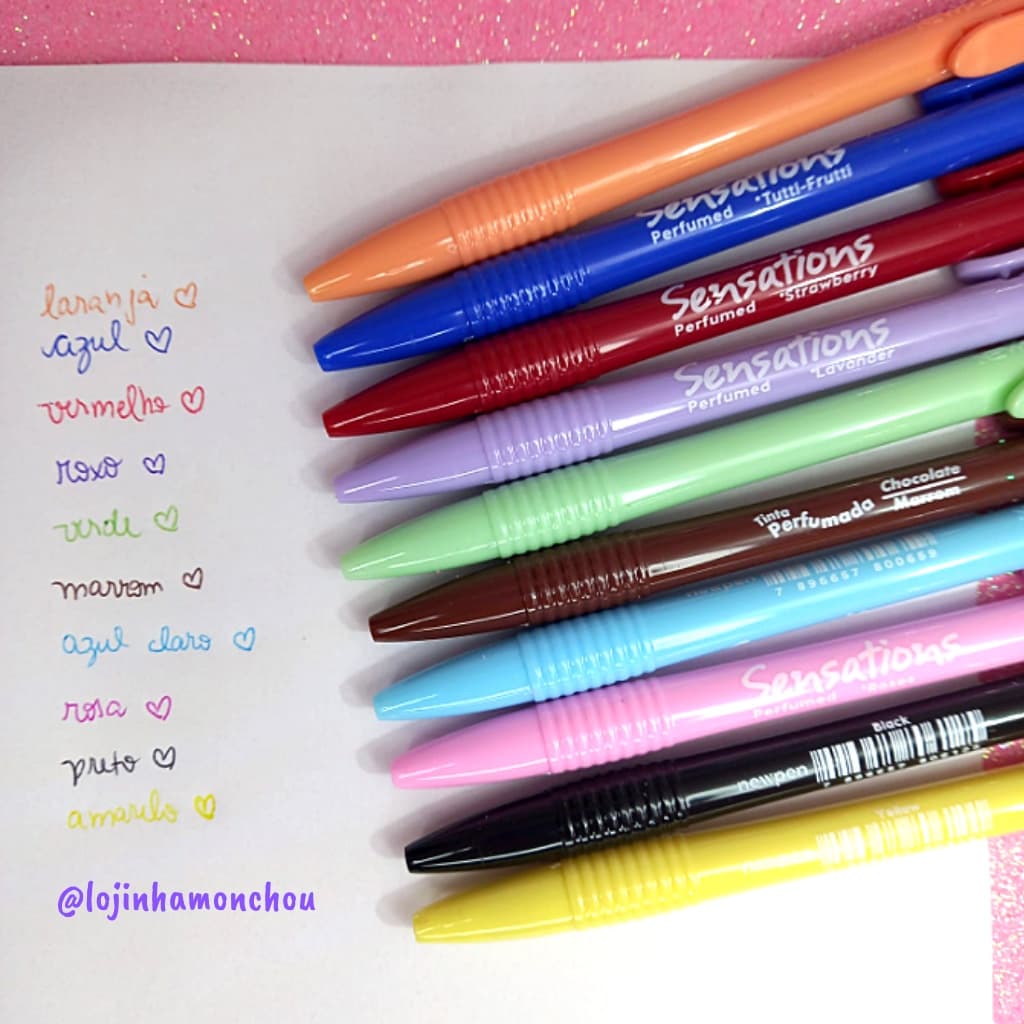 laranja
azul
vermelho
roxo
verde
marrom
azul claro
rosa
preto
amarelo
@lojinhamonchou
Sensations
Perfumed *Tutti-Frutti
Sensations
Perfumed *Strawberry
Sensations
Perfumed *Lavander
Tinta Perfumada Chocolate
Marrom
7 896657 800659
Sensations
Perfumed
newpen Black
Yellow